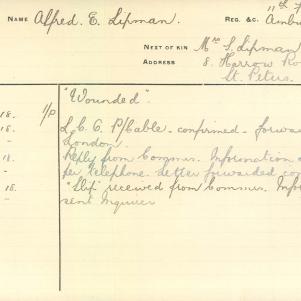 NAME Alfred. E. Lipman. REG. &C. 11th F
Ambu
NEXT OF KIN Mrs S. Lipman
ADDRESS 8. Harrow Ro
St. Peters.
18. "Wounded".
18. L.C.C. P/Cable - confirmed - forwar
- London.
18. Reply from Commrs. Information a
- per telephone. Letter forwarded con
18. "Slip" received from Commrs. Infor
- sent Inquirer